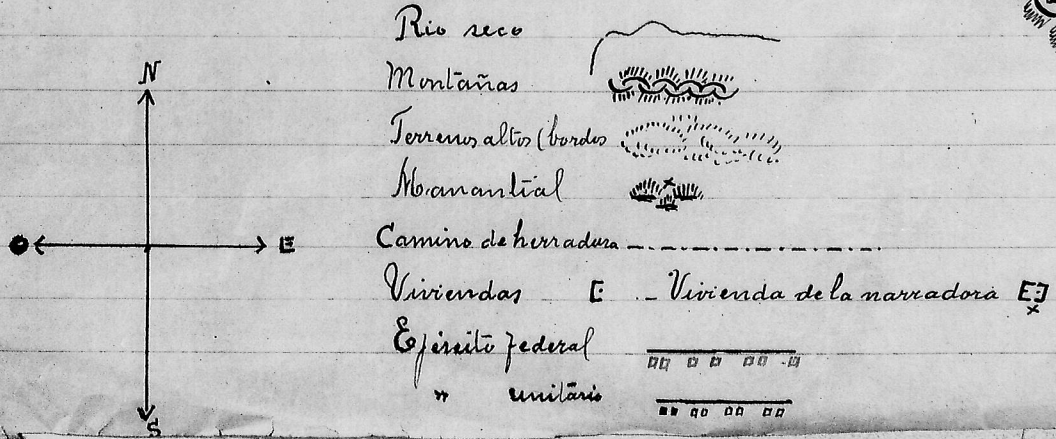 Rio seco
N
Montañas
Terrenos altos (bordos
Manantial
O E Camino de herradura
Viviendas - Vivienda de la narradora
Ejército federal
" unitário
S